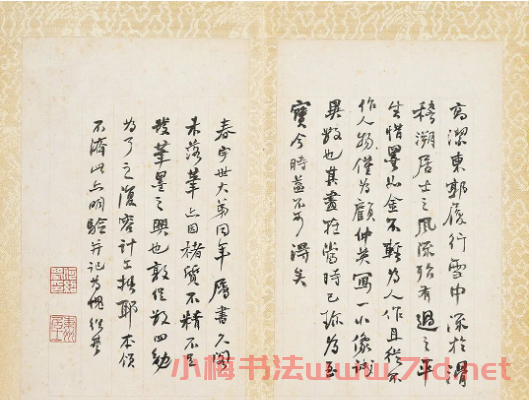 高潔東郭履行雪中深於滑
稽溯居士之風流殆有過之平
生惜墨如金不輕為人作且從不
作人物僅為顧仲英寫一小像誠
異數也其畫在當時已珍為至
寶今時蓋不可得矣
春宇世大弟同年屬書久閣
未落筆亦因褚質不精不足
發筆墨之興也敦促數四勉
為了之復審計工拙耶本領
不濟此亦明驗并記為愧
小梅书法www.7ld.net